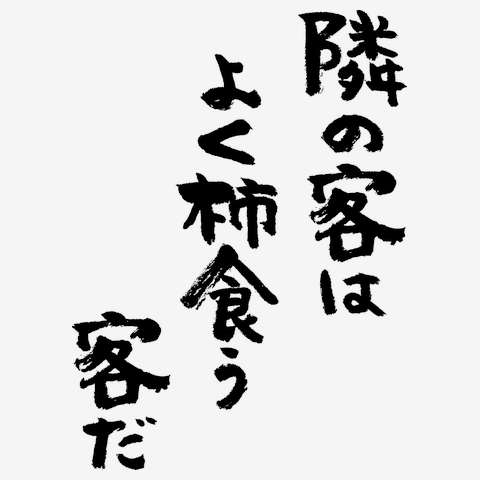 隣の客は
よく柿食う
客だ